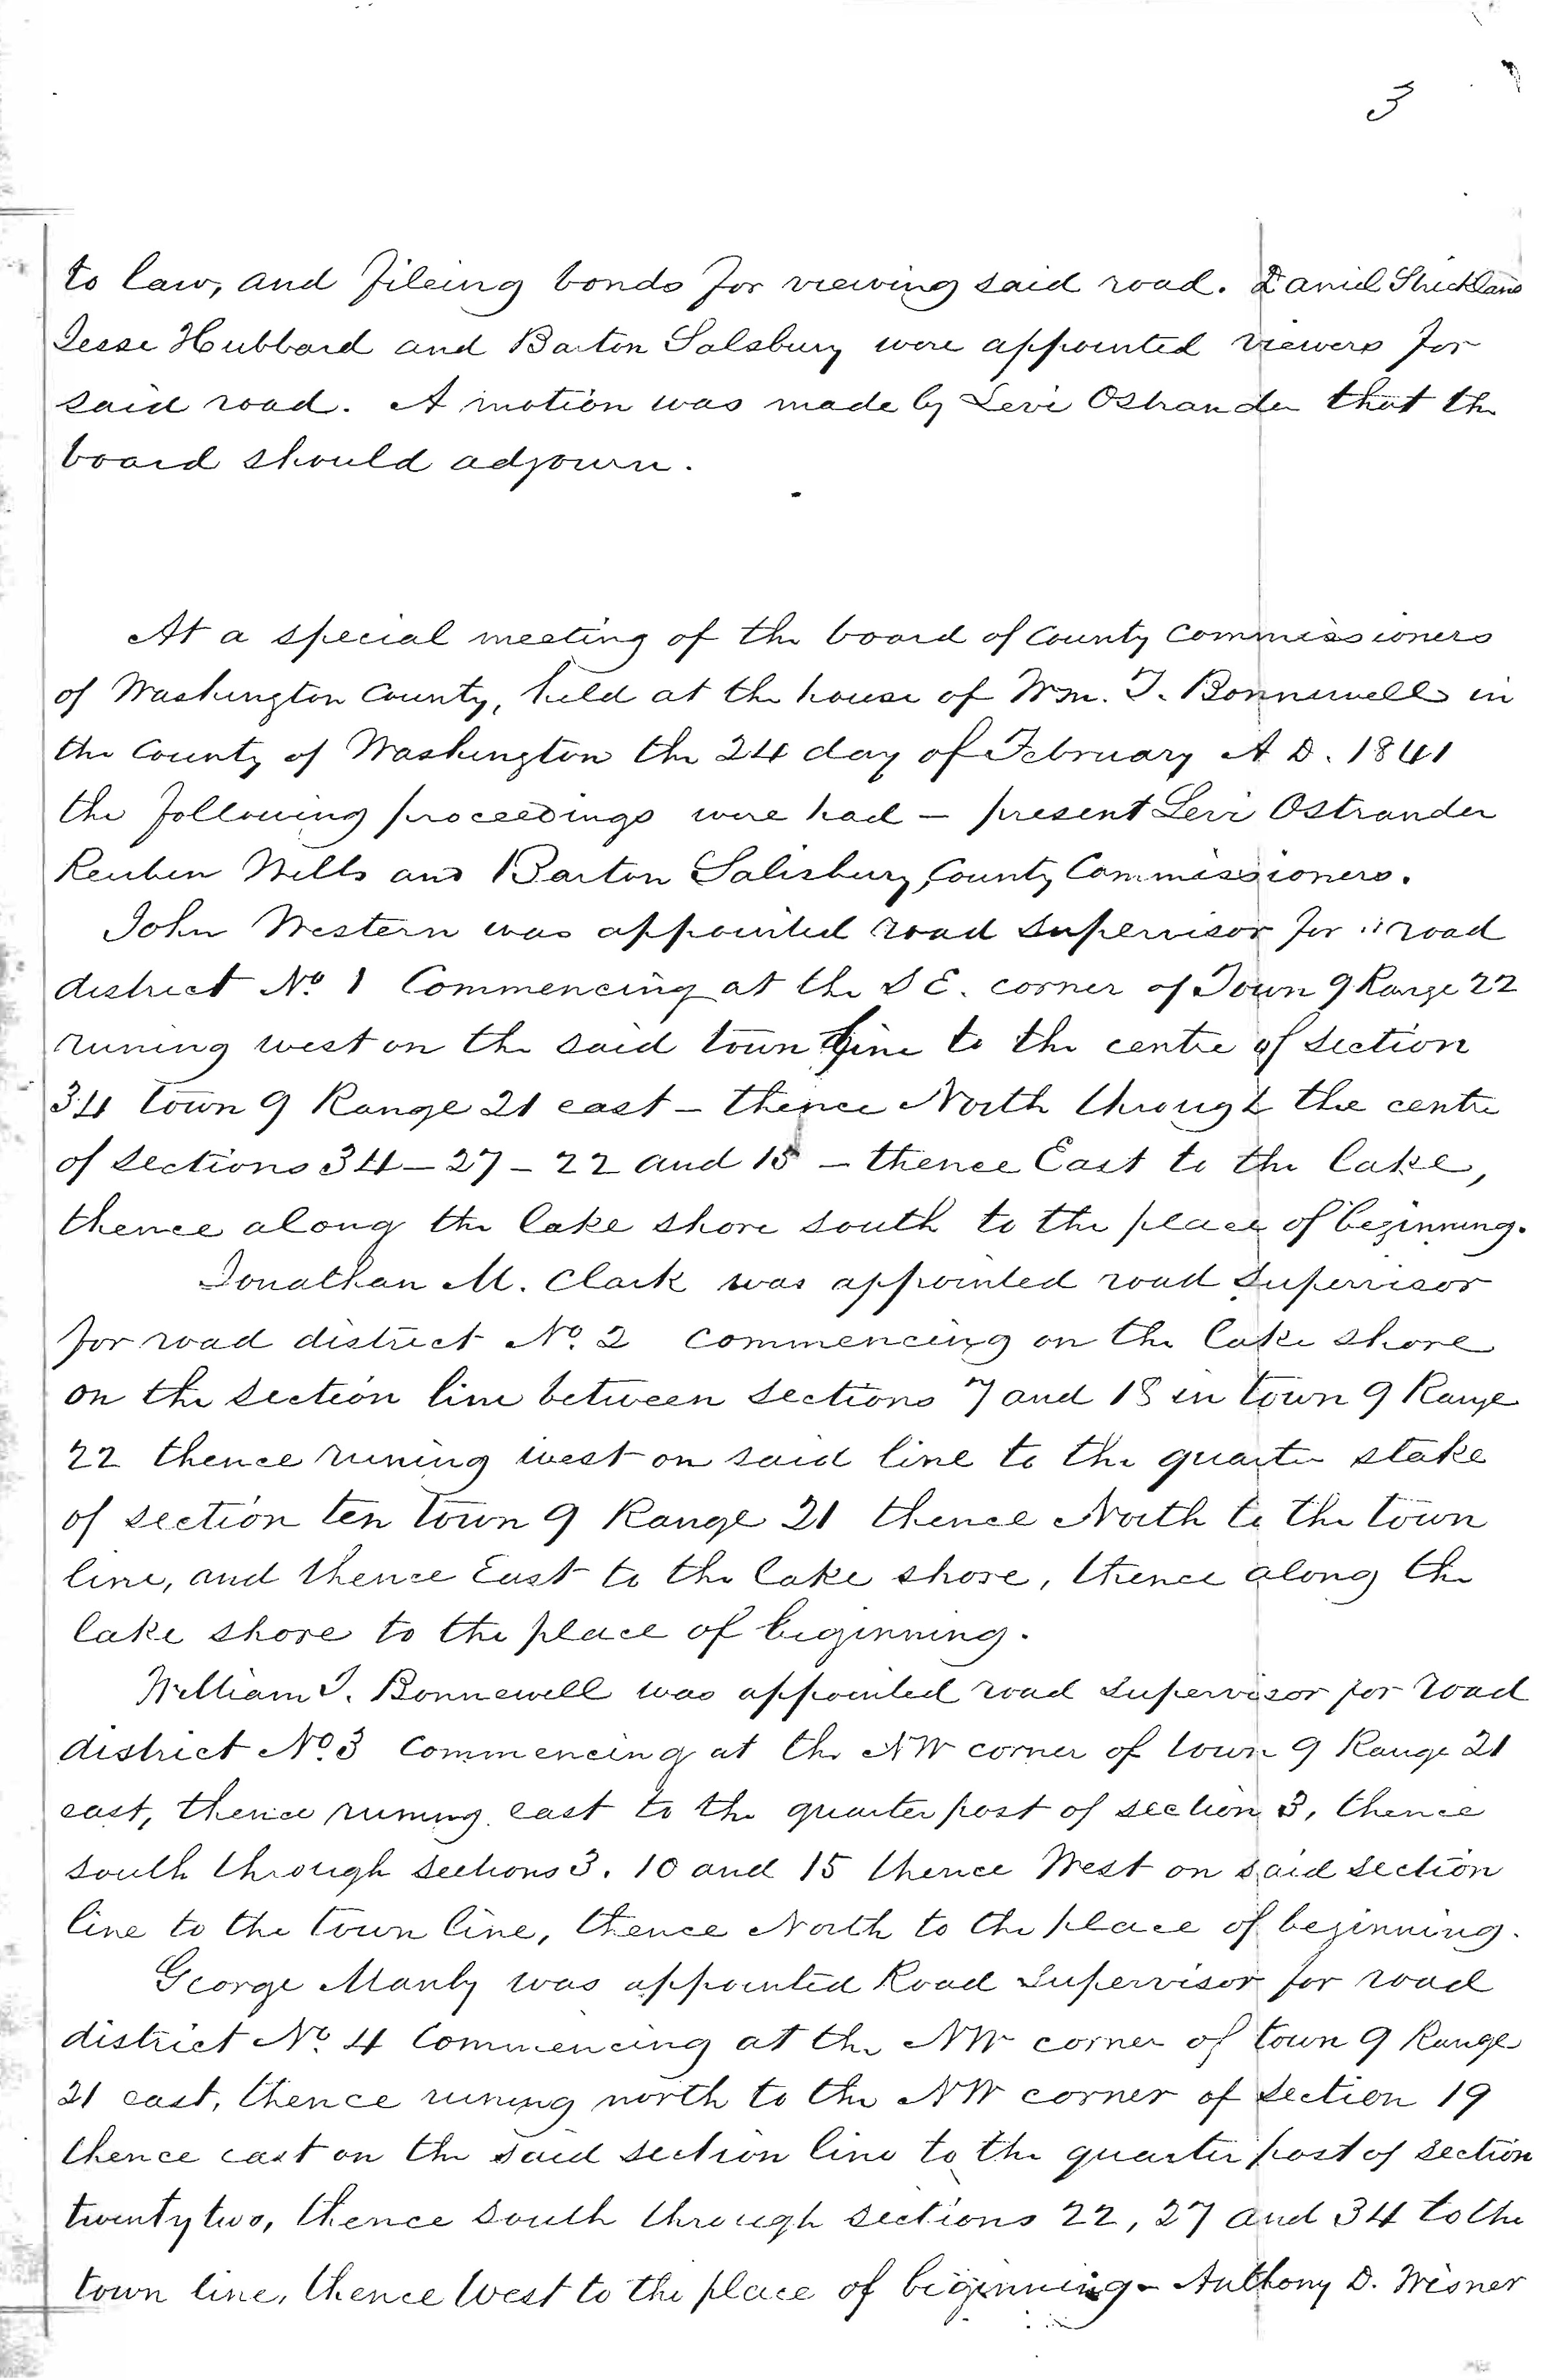 3
to law, and fileing bonds for viewing said road. Daniel Strickland
Jesse Hubbard and Barton Salsbury were appointed viewers for
said road. A motion was made by Levi Ostrander that the
board should adjourn.
At a special meeting of the board of County Commissioners
of Washington County, held at the house of Wm. T. Bonnewell in
the County of Washington the 24 day of February A D. 1841
the following proceedings were had – present Levi Ostrander
Reuben Wells and Barton Salisbury, County Commissioners.
John Western was appointed road supervisor for road
district No. 1 Commencing at the S E. corner of Town 9 Range 22
runing west on the said town line to the centre of section
34 town 9 Range 21 east – thence North through the centre
of sections 34 – 27 – 22 and 15 – thence East to the lake,
thence along the lake shore south to the place of beginning.
Jonathan M. Clark was appointed road supervisor
for road district No. 2 commencing on the lake shore
on the section line between sections 7 and 18 in town 9 Range
22 thence runing west on said line to the quarter stake
of section ten town 9 Range 21 thence North to the town
line, and thence East to the lake shore, thence along the
lake shore to the place of beginning.
William T. Bonnewell was appointed road supervisor for road
district No. 3 Commencing at the NW corner of town 9 Range 21
east, thence runing east to the quarter post of section 3, thence
south through sections 3. 10 and 15 thence West on said section
line to the town line, thence North to the place of beginning.
George Manly was appointed Road Supervisor for road
district No. 4 Commencing at the NW corner of town 9 Range
21 east, thence runing north to the NW corner of section 19
thence east on the said section line to the quarter post of section
twenty two, thence south through sections 22, 27 and 34 to the
town line, thence West to the place of beginning – Anthony D. Wisner